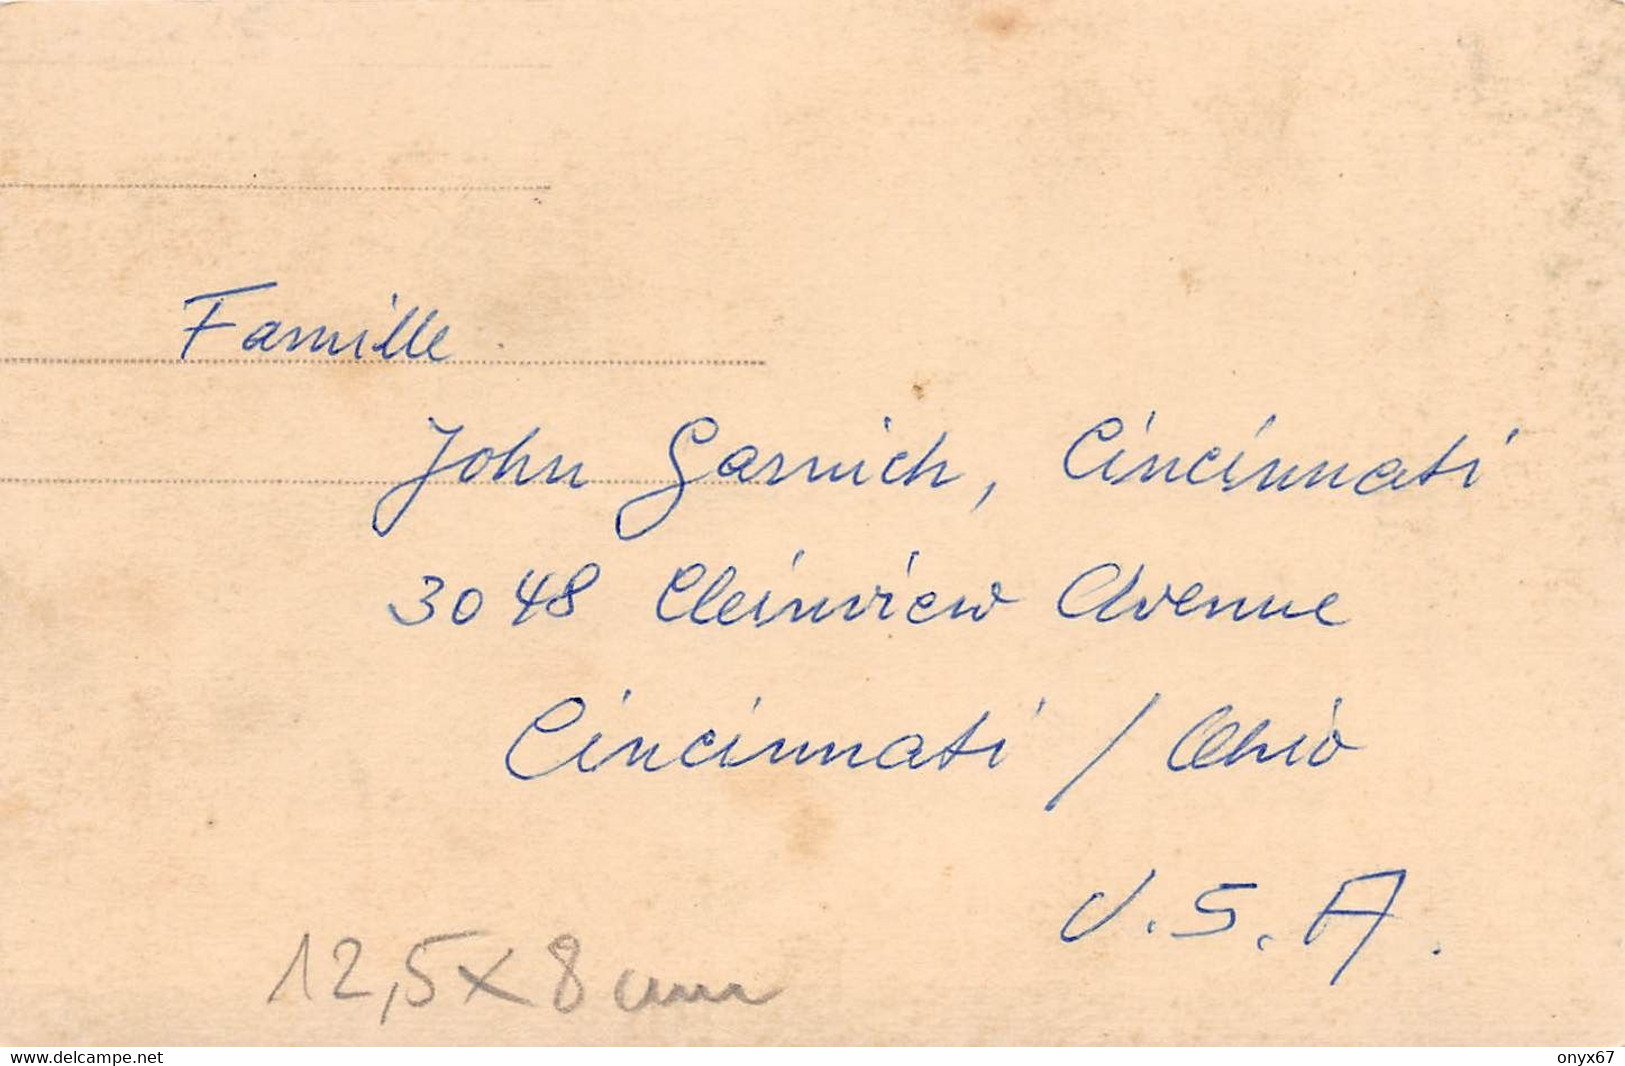 Famille
John Garnich, Cincinnati
3048 Cleinview Avenue
Cincinnati / Ohio
U.S.A.
12,5 x 8 cm
www.delcampe.net
onyx67